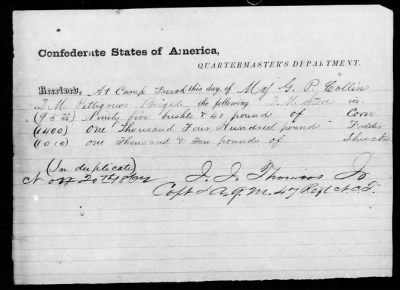 Confederate States of America,
QUARTERMASTER'S DEPARTMENT.
Received, At Camp French this day, of Maj G. P. Collins
Q M Pettigrew Brigade the following Q. M. Stores viz.
(95 40) Ninty five bushls & 40 pounds of Corn
(1400) One Thousand Four Hundred pounds Fodder
(1010) One Thousand & Ten pounds of Shucks
(In duplicate)
Nov 20th 1862
J. J. Thomas Jr
Capt & A. Q. M. 47 Regt N. C. T.